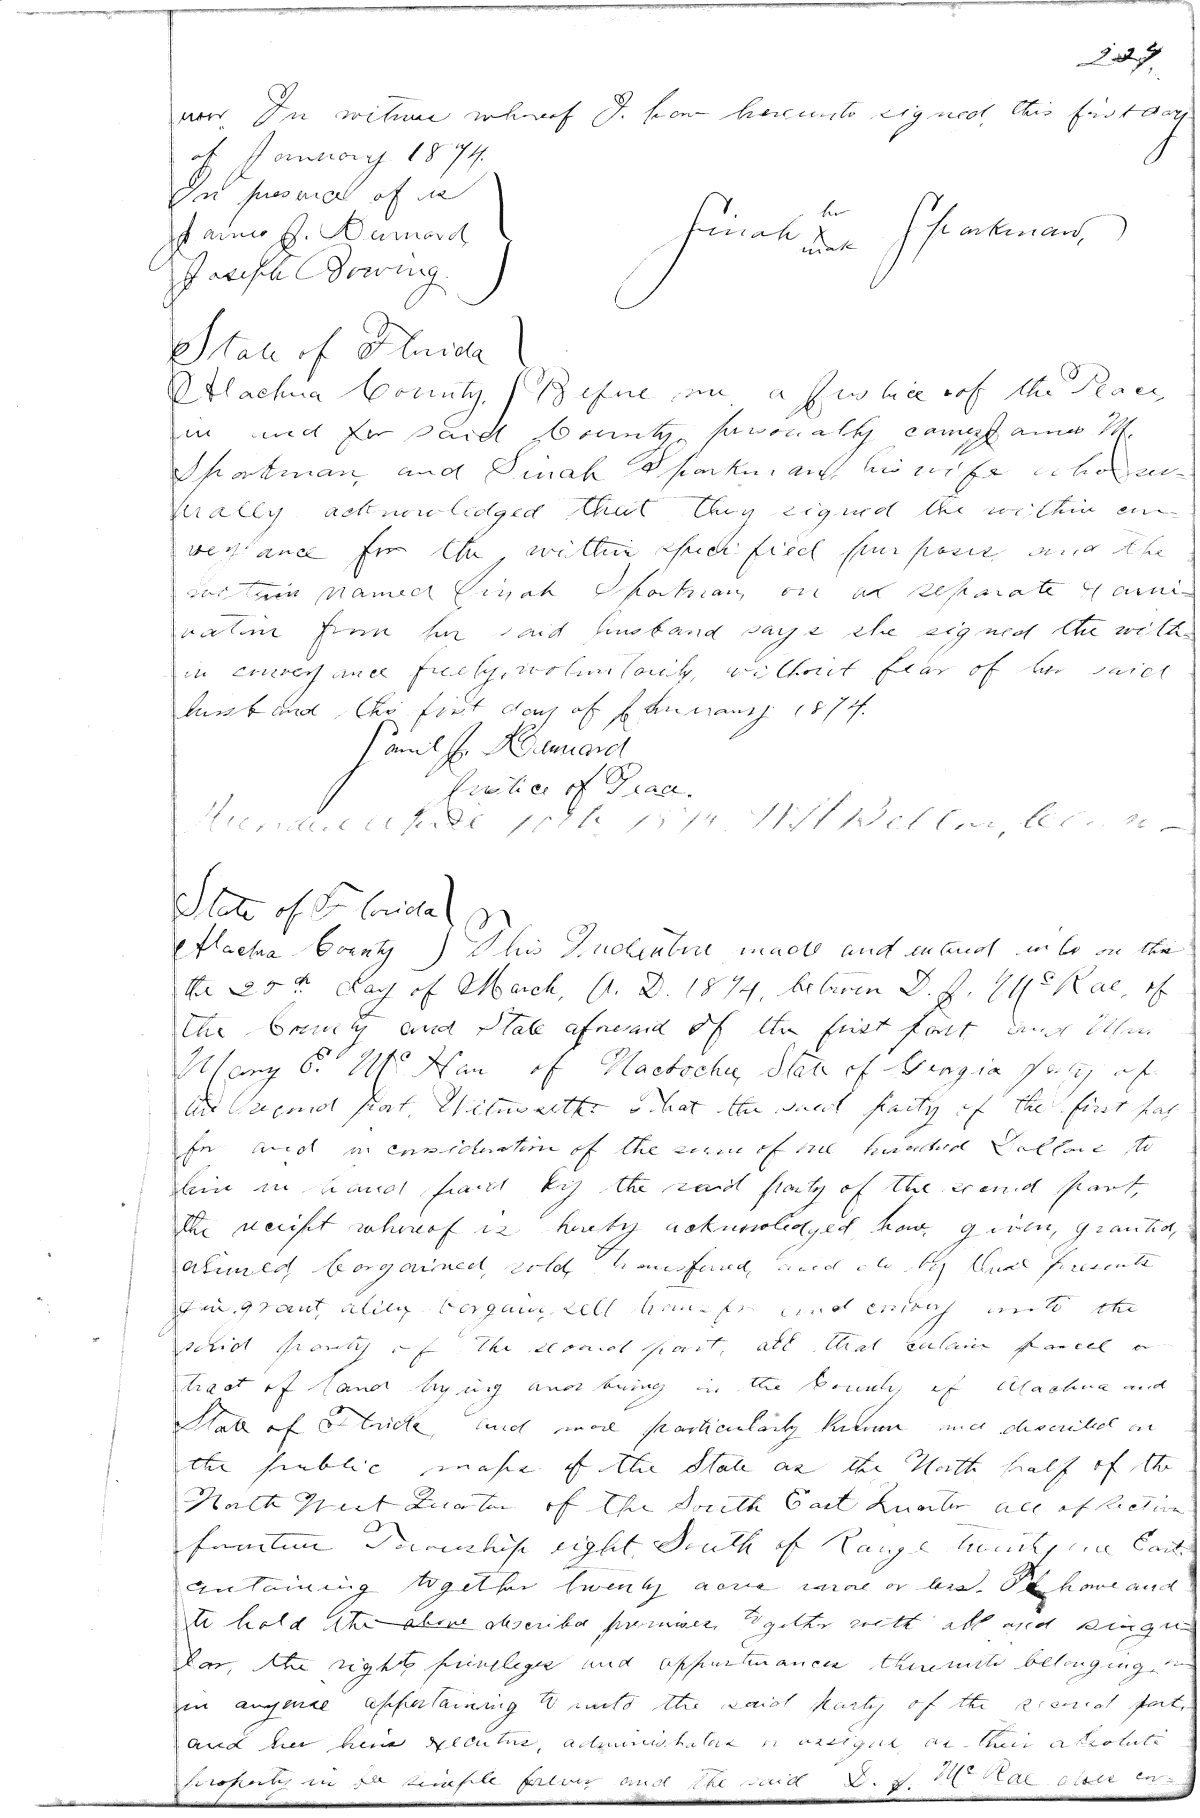 227.
In witness whereof I have hereunto signed this first day
of January 1874.
In presence of us
James J. Barnard
Joseph Dowing.
Sinah her X mark Sparkman,
State of Florida
Alachua County. Before me a Justice of the Peace,
in and for said County, personally comes James M.
Sparkman, and Sinah Sparkman his wife who sev-
erally acknowledged that they signed the within con-
veyance for the within specified purposes and the
within named Sinah Sparkman on a separate exami-
nation from her said husband says she signed the with-
in conveyance freely, voluntarily, without fear of her said
husband this first day of January 1874.
J. Barnard
Justice of Peace.
State of Florida
Alachua County This Indenture made and entered into on this
the 20th day of March, A. D. 1874, between D. J. McRae, of
the County and State aforesaid of the first part and
Mary E. of Nacoochee, State of Georgia party of
the second part. Witnesseth: That the said party of the first par
for and in consideration of the sum of one hundred Dollars to
him in hand paid by the said party of the second part,
the receipt whereof is hereby acknowledged have given, granted,
aliened, bargained, sold, transferred, and do by these presents
give, grant, alien, bargain, sell transfer and convey unto the
said party of the second part, all that certain parcel or
tract of land lying and being in the County of Alachua and
State of Florida, and more particularly known and described on
the public maps of the State as the North half of the
North West Quarter of the South East Quarter all of Section
fourteen Township eight South of Range twenty one East.
containing together twenty acres more or less. To have and
to hold the above described premises together with all and singu-
lar, the rights privileges and appurtenances thereunto belonging or
in anywise appertaining to unto the said party of the second part.
and her heirs executors, administrators or assigns, as their absolute
property in fee simple forever and the said D. J. McRae does cov-